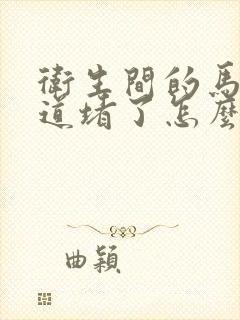 衛生間的馬
道堵了怎麼
曲穎